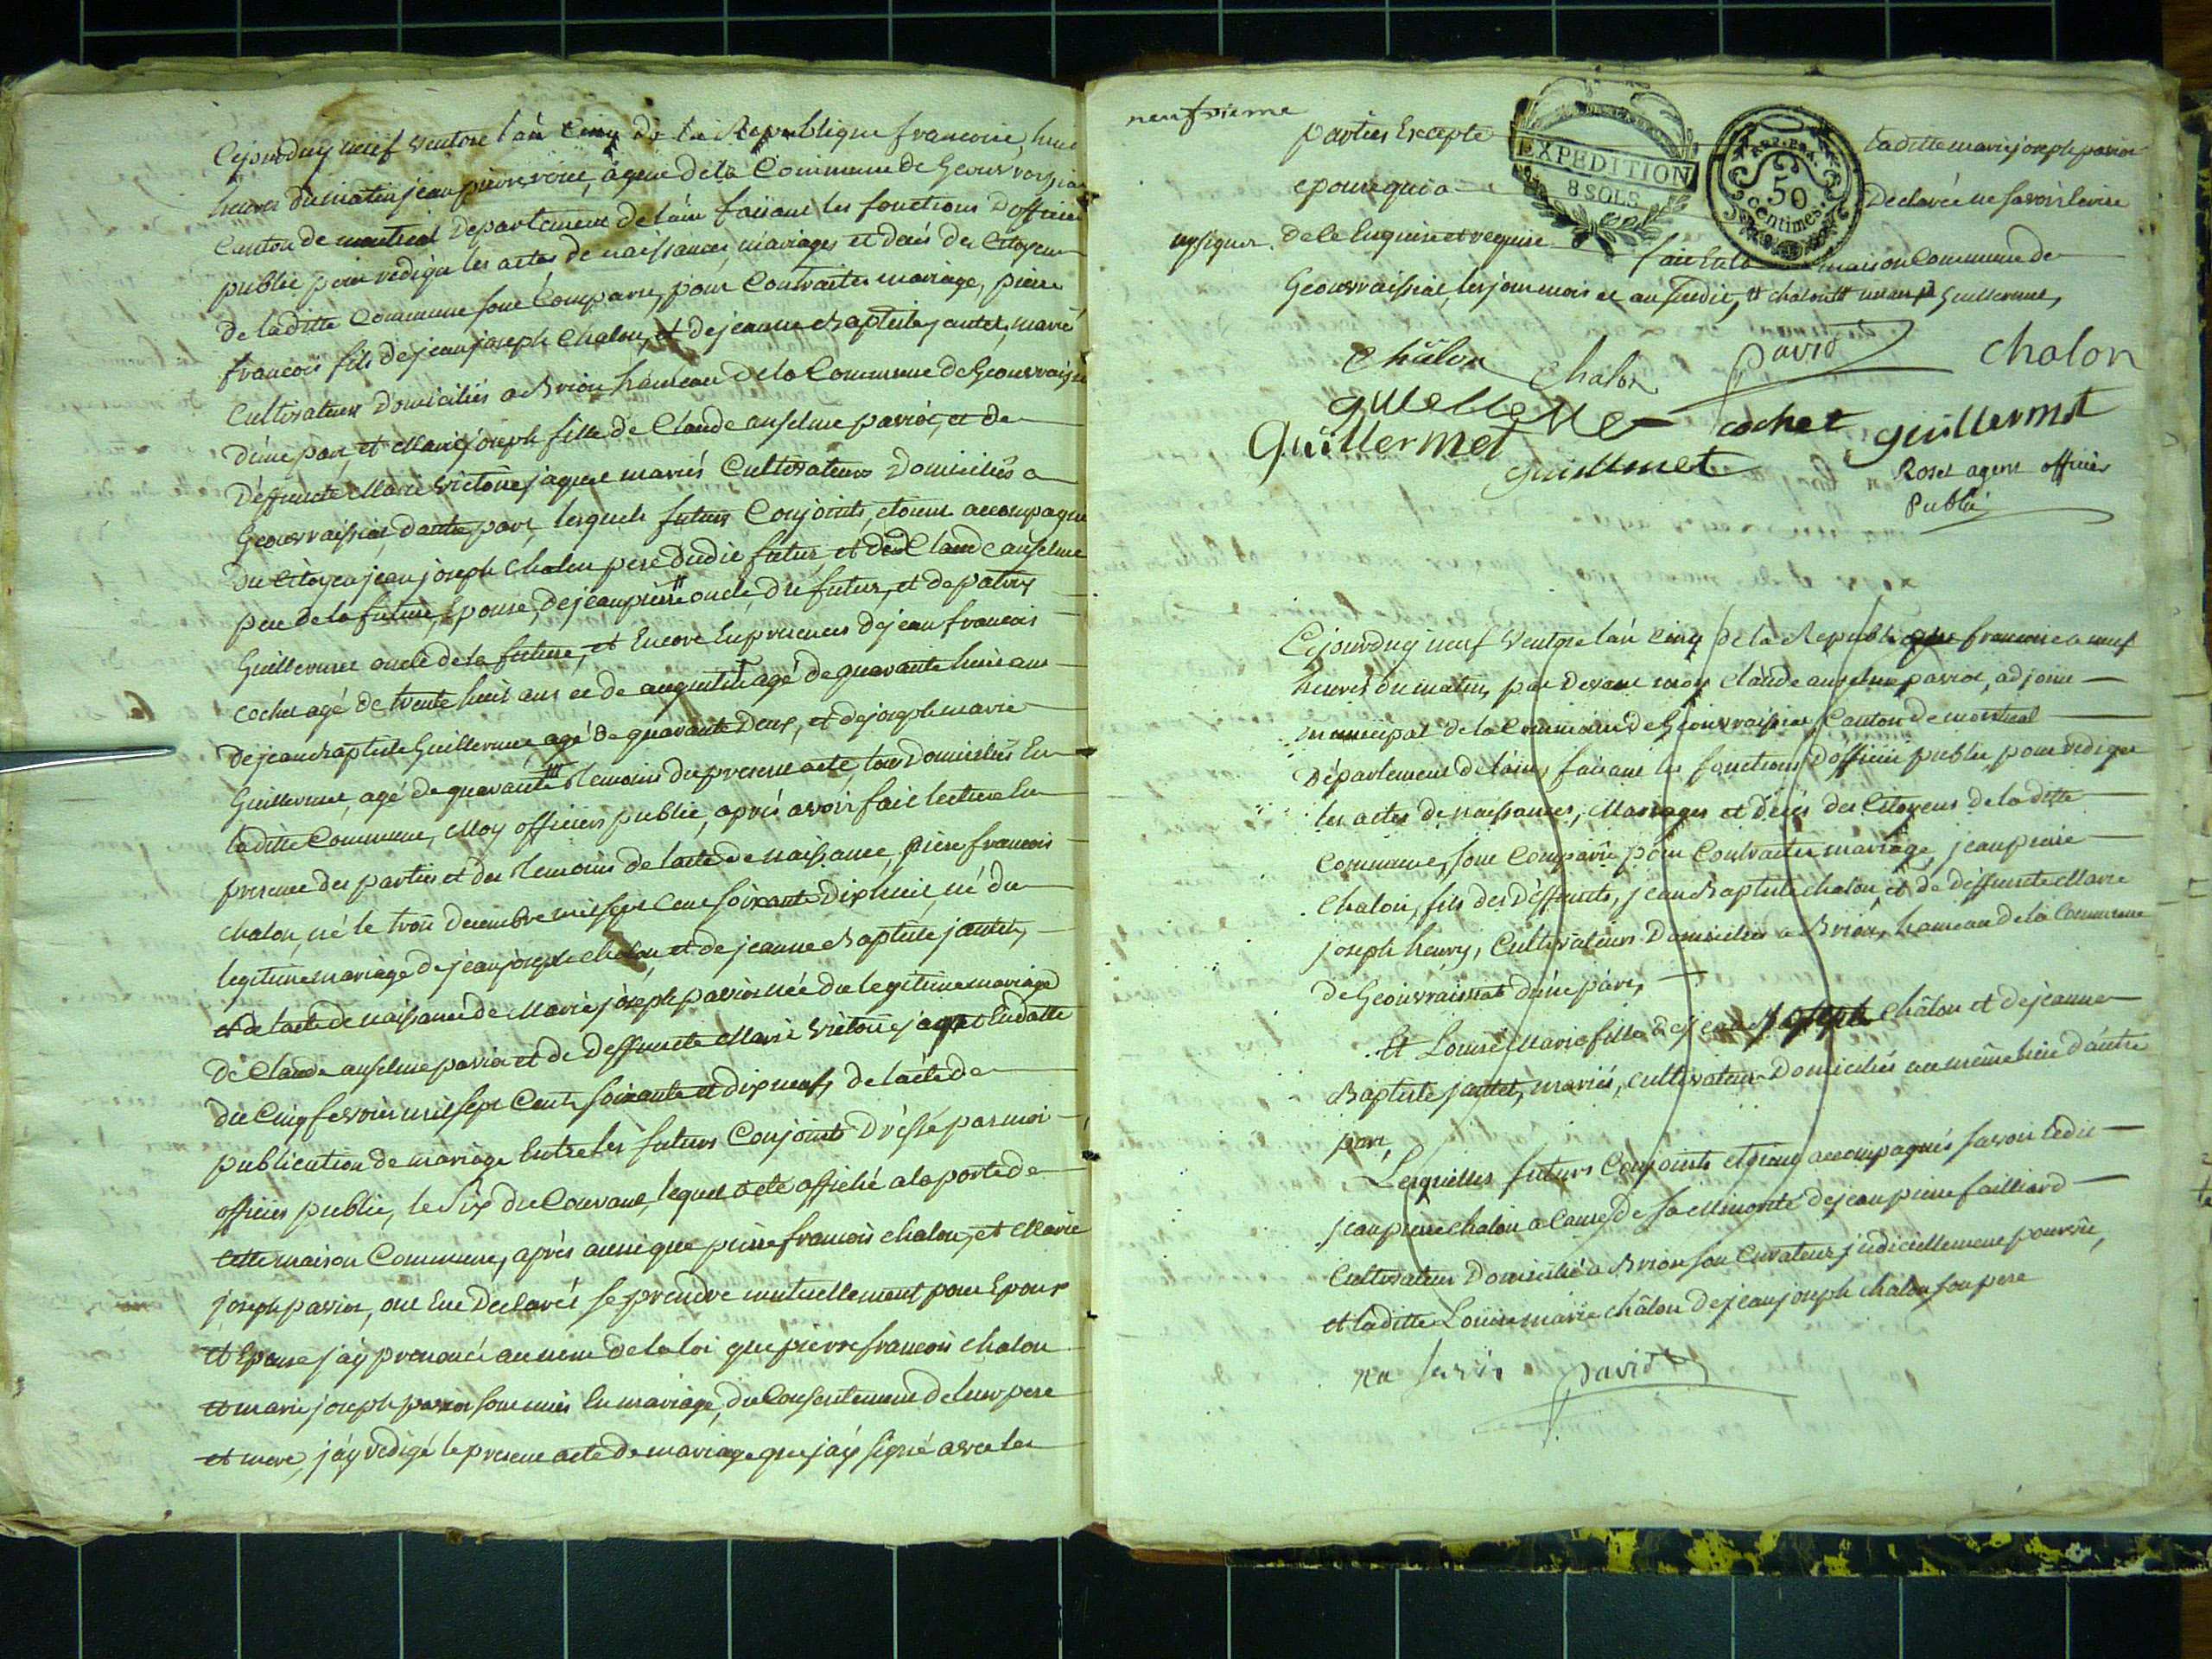 Cejourduy neuf ventose l'an cinq de la Republique francoise, huit
heures du matin jean pierre roset, agent de la Commune de Geovraissiat
Canton de montreal Departement de l'ain faisant les fonctions D'officier
public pour rediger les actes de naissances, mariages et deces des Citoyens
de laditte Commune sont Comparu, pour Contracter mariage, pierre
francois fils de jean joseph Chalon, et de jeanne Baptiste jantet, mariés
Cultivateurs Domiciliés a Brion hameau de la Commune de Geovraissiat
D'une part, et Marie joseph fille de Claude anselme pariot, et de
Deffuncte Marie Victoire jaquet mariés Cultivateurs Domiciliés a
Geovraissiat d'autre part, lesquels futurs Conjoints, etoient accompagné
du Citoyen jean joseph Chalon pere dudit futur, et de Claude anselme
pere de la future, Epouse, de jean pierre # oncle, du futur, et de
Guillermet oncle de la future, et Encore En presences de jean francois
cochet agé de trente huit ans et de augustin # agé de quarante huit ans
De jean Baptiste Guillermet agé de quarante Deux, et de joseph marie
Guillermet, agé de quarante # temoins du present acte, tous Domiciliés En
laditte Commune, Moy officier public, aprés avoir fait lecture En
presence des parties et des temoins de l'acte de naissance, pierre francois
chalon, né le trois Decembre mil sept Cent soixante Dixhuit, né du
legitime mariage de jean joseph chalon et de jeanne Baptiste jantet,
et de l'acte de naissance de Marie joseph pariot née du legitime mariage
De Claude anselme pariot et de Deffuncte Marie Victoire jaquet En datte
du Cinq fevrier mil sept Cent soixante et dix neuf, de l'acte de
publication de mariage Entre les futurs Conjoints Dréssé par moi
officier public, le Six du Courant, lequel a été affiché a la porte de
cette maison Commune, aprés aussi que pierre francois chalon, et Marie
joseph pariot, ont Eue Declarés se prendre mutuellement pour Epoux
et Epouse j'ay prononcé au nom de la loi que pierre francois chalon
et marie joseph pariot sont unis En mariage, du Consentement de leur pere
et mere, j'ay redigé le present acte de mariage que j'ay signé avec les
neufvieme
parties Excepte laditte marie joseph pariot
epouse qui a Declarée ne savoir Ecrire
ny signer de ce Enquise et requise fait En la maison Commune de
Geovraissiat, les jour mois et an susdit, # chalon # Guillermet,
EXPEDITION
8 SOLS
REP. FRA.
50
centimes
Châlon Chalon Paviot chalon
Guillermet cochet guillermet
Guillermet guillmet Roset agent officier
Public
Cejourduy neuf Ventose l'an cinq de la Republique francoise a neuf
heures du matin, par Devant moy Claude anselme pariot, adjoint
municipal de la Commune de Geovraissiat Canton de montreal
Département de l'ain, faisant les fonctions D'officier public pour rediger
les actes de naissances, Mariages et Décés des Citoyens de laditte
Commune, sont Comparu pour Contracter mariage, jean pierre
Chalon, fils des Deffuncts, jean Baptiste chalon, et de deffuncte Marie
joseph henry, Cultivateurs Domiciliés a Brion, hameau de la Commune
de Geovraissiat d'une part,
Et Louise Marie fille de jean joseph Châlon et de jeanne
Baptiste jantet, mariés, cultivateurs Domiciliés au même lieu d'autre
part,
Lesquelles futurs Conjoints etoient accompagnés savoir ledit
jean pierre chalon a Cause de sa Minorité de jean pierre failliard
Cultivateur Domicilié a Brion son Curateur judiciellement pourvû,
et laditte Louise marie châlon de jean joseph chalon son pere
Paviot